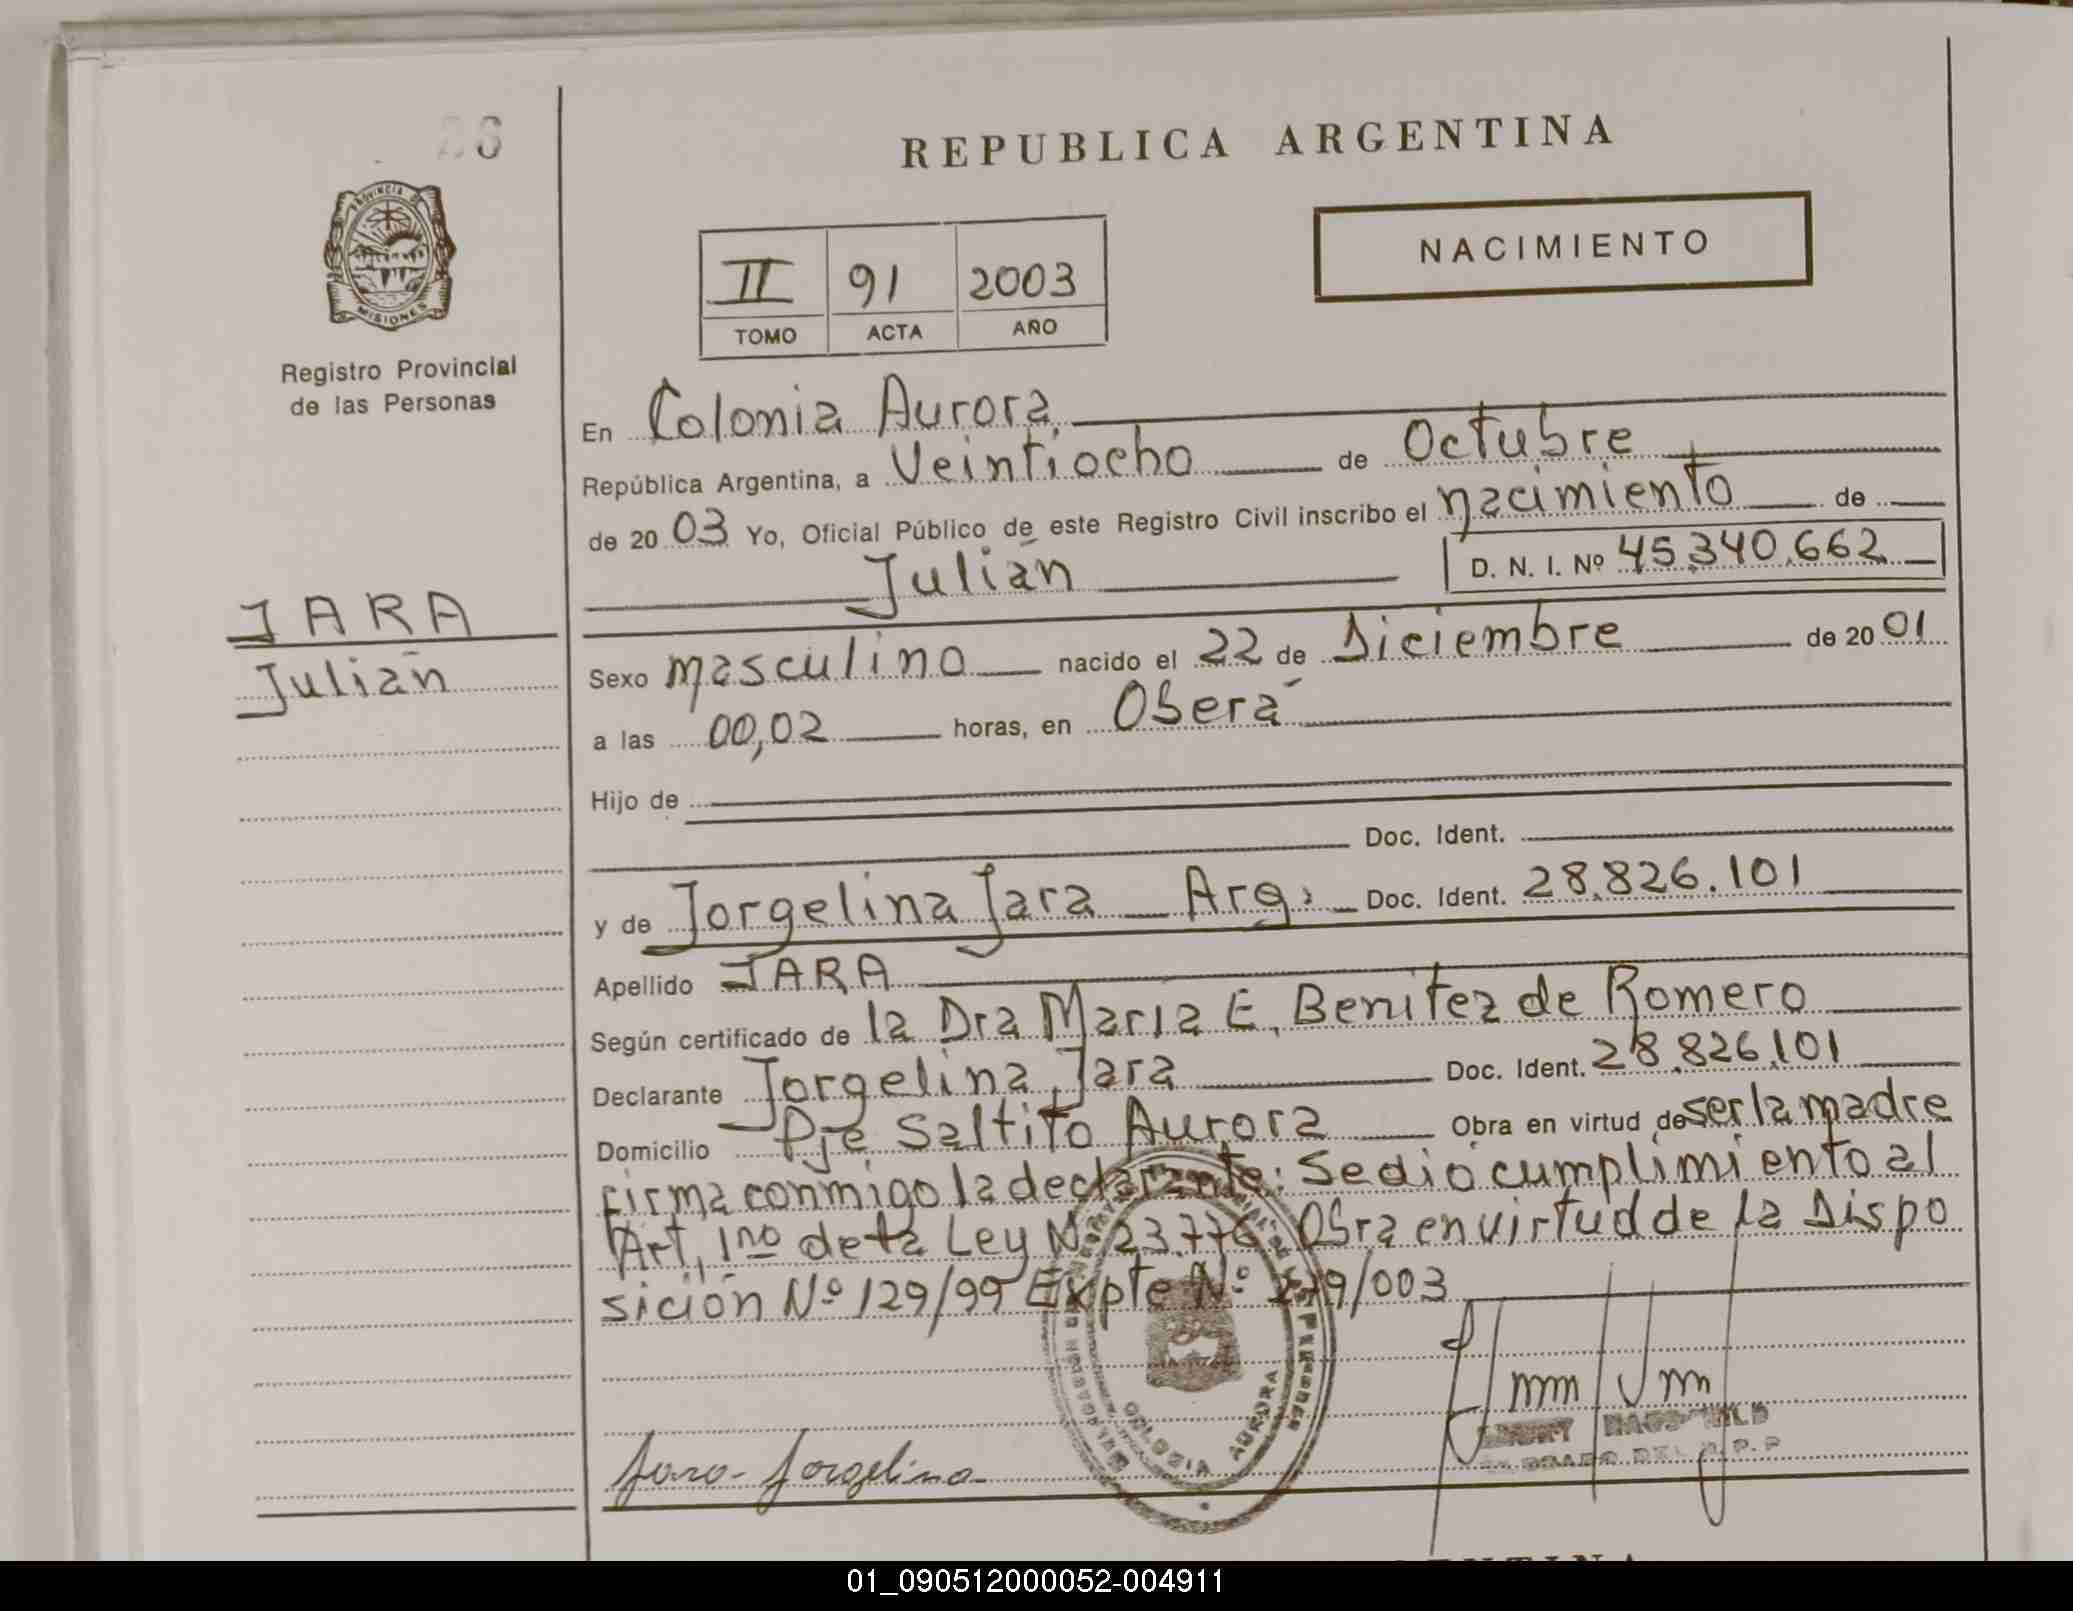 REPUBLICA ARGENTINA
NACIMIENTO
II 91 2003
TOMO ACTA AÑO
PROVINCIA DE
MISIONES
Registro Provincial
de las Personas
JARA
Julián
En Colonia Aurora,
República Argentina, a Veintiocho de Octubre
de 20 03 Yo, Oficial Público de este Registro Civil inscribo el nacimiento de
Julián D. N. I. Nº 45.340.662
Sexo masculino nacido el 22 de Diciembre de 20 01
a las 00,02 horas, en Oberá
Hijo de
Doc. Ident.
y de Jorgelina Jara Arg. Doc. Ident. 28.826.101
Apellido JARA
Según certificado de la Dra María E. Benitez de Romero
Declarante Jorgelina Jara Doc. Ident. 28.826.101
Domicilio Pje Saltito Aurora Obra en virtud de ser la madre
firma conmigo la declarante: Se dió cumplimiento al
Art. 1no de la Ley Nº 23.776. Obra en virtud de la Dispo
sición Nº 129/99 Expte Nº /003
COLONIA AURORA
Jara Jorgelina
01_090512000052-004911